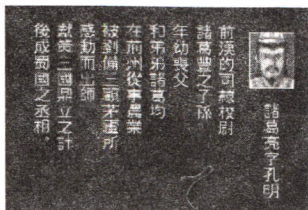 諸葛亮字孔明
前漢的司隸校尉
諸葛豐之子孫
年幼喪父
和弟弟諸葛均
在荊州從事農業
被劉備三顧茅廬所
感動而出師
獻策三國鼎立之計
後成蜀國之丞相。